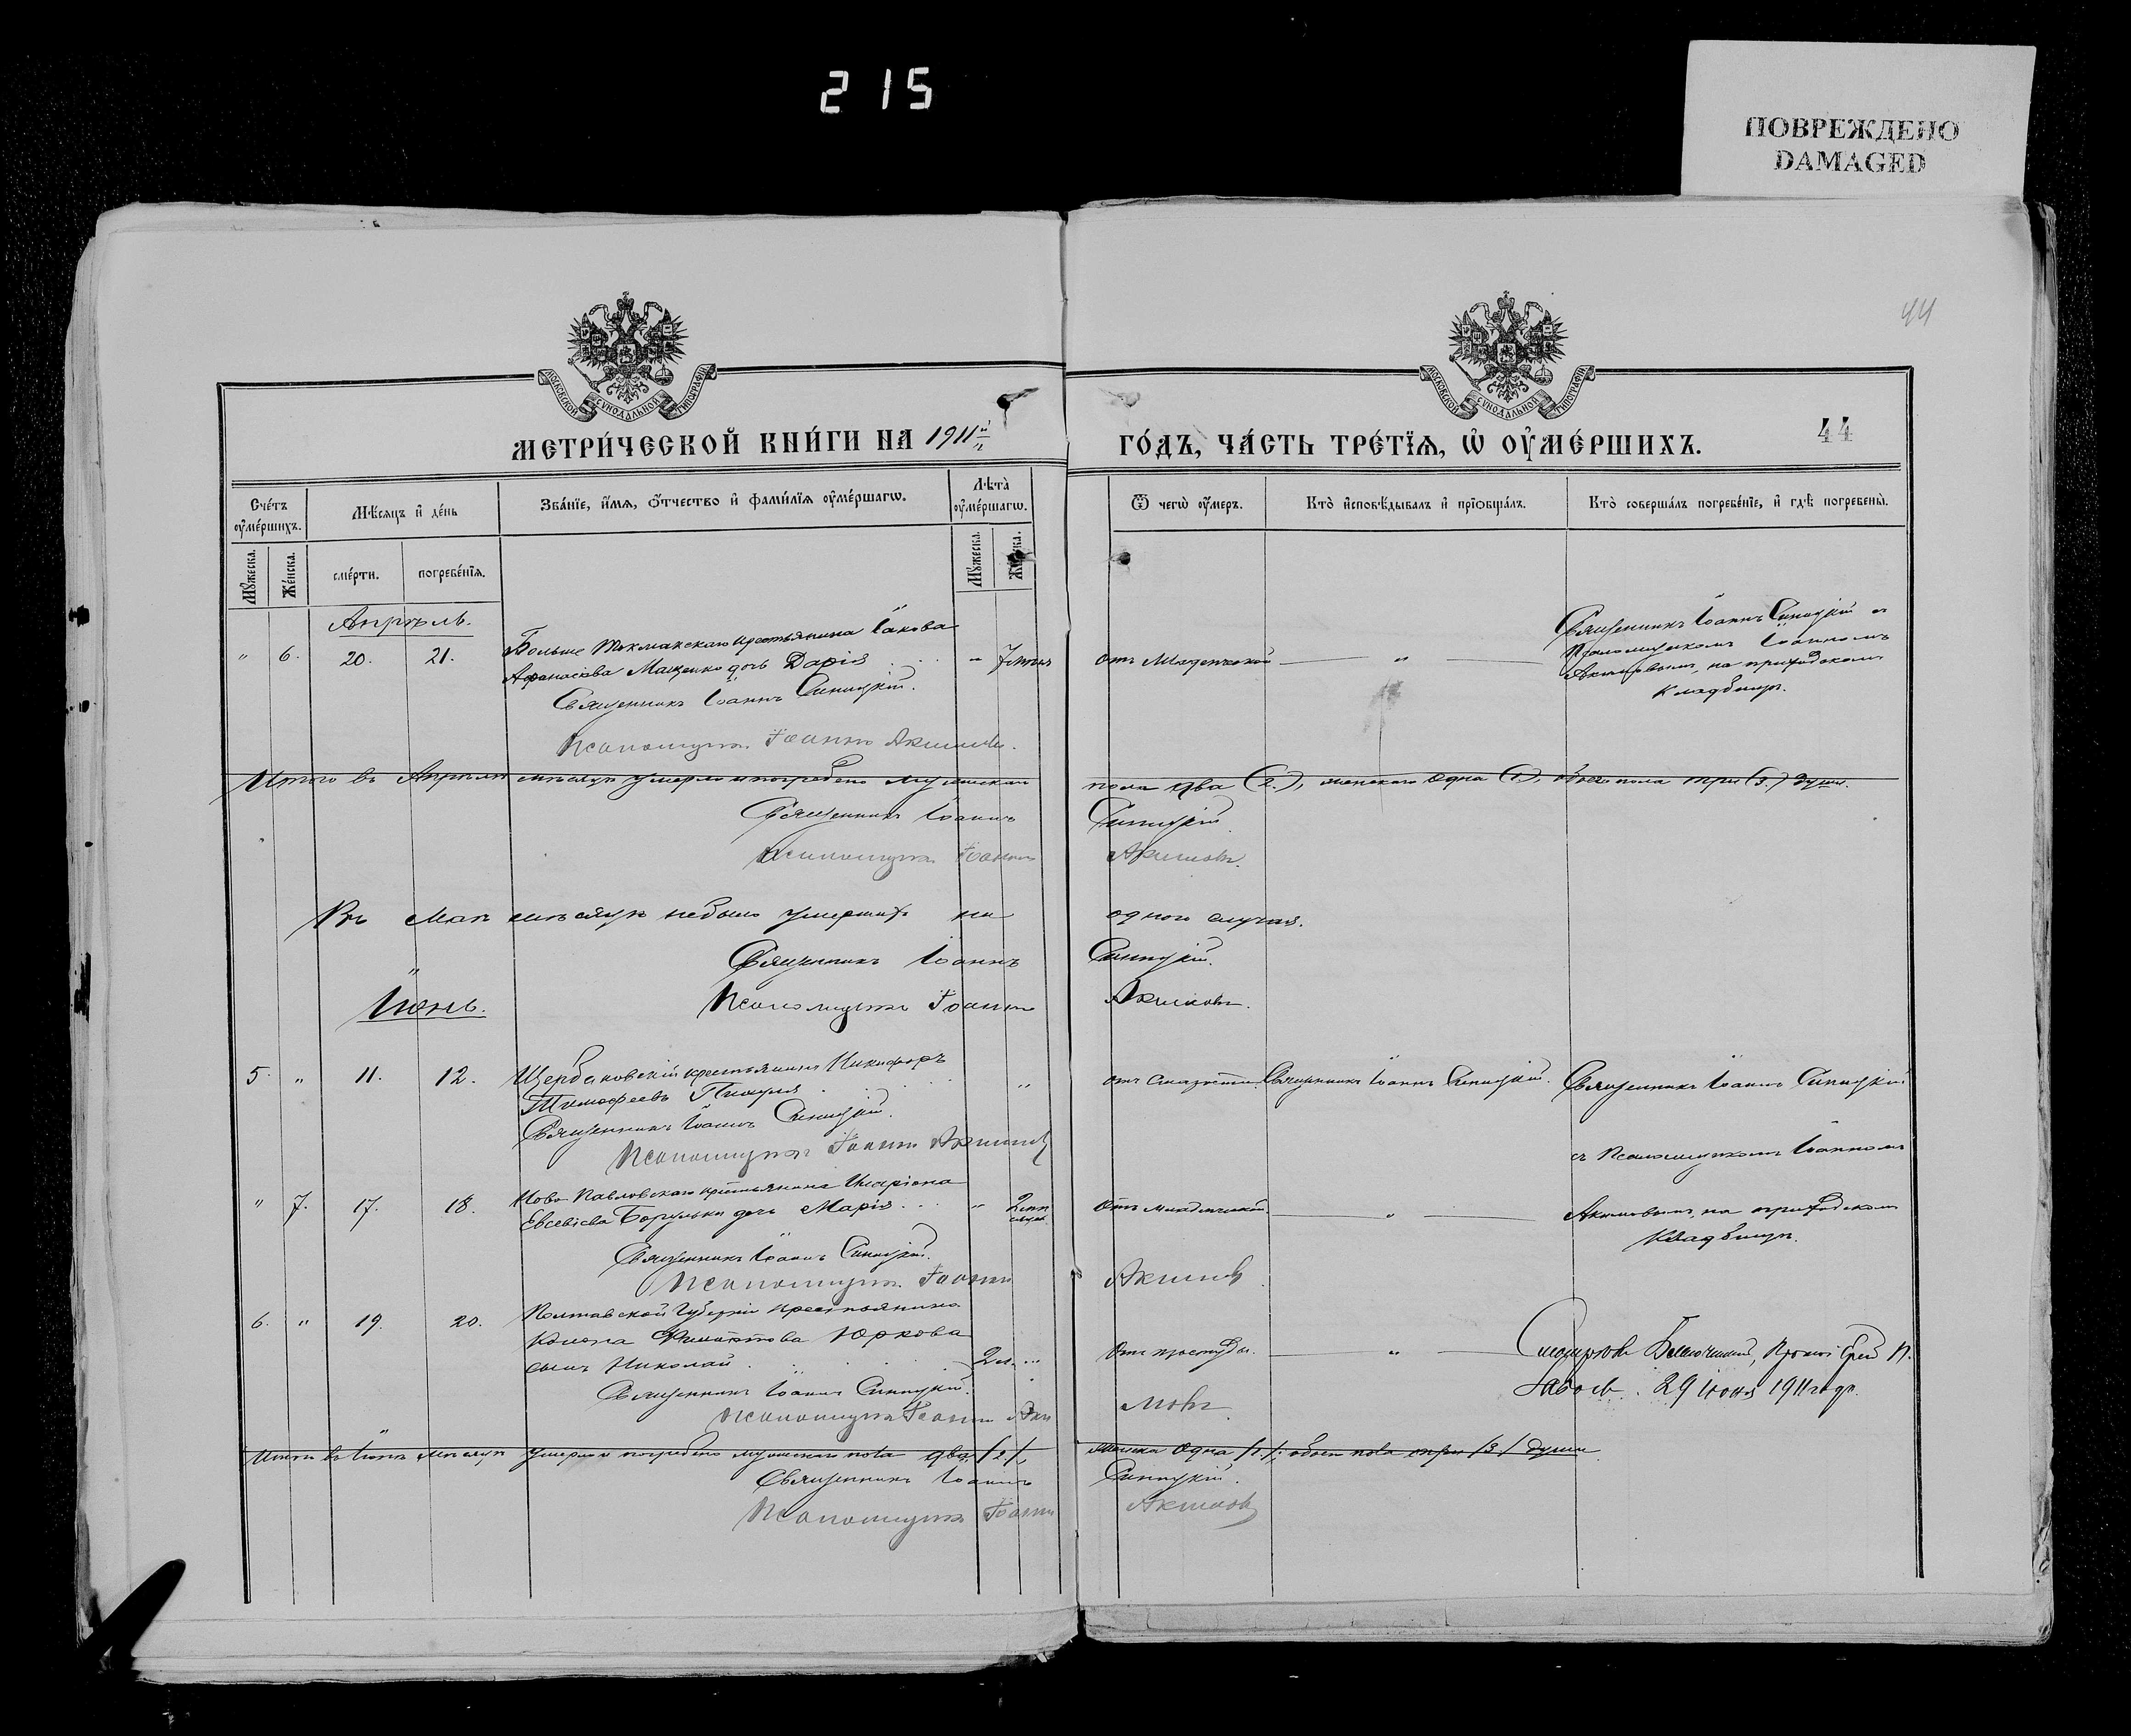 215
ПОВРЕЖДЕНО
DAMAGED
44
МОСКОВСКОЙ СѴНОДАЛЬНОЙ ТИПОГРАФІИ
МОСКОВСКОЙ СѴНОДАЛЬНОЙ ТИПОГРАФІИ
МЕТРИ́ЧЕСКОЙ КНИ́ГИ НА 1911й
ГО́ДЪ, ЧА́СТЬ ТРЕ́ТЇѦ, Ѡ ОУ҆МЕ́РШИХЪ.
44
Сче́тъ оу҆ме́ршихъ.
Мѣ́сѧцъ и҆ де́нь
Зва́нїе, и҆́мѧ, ѻ҆́тчество и҆ фами́лїѧ оу҆ме́ршагѡ.
Лѣ̀та̀ оу҆ме́ршагѡ.
Ѿ чегѡ̀ оу҆́меръ.
Кто̀ и҆сповѣ́дывалъ и҆ прїѻбща́лъ.
Кто̀ соверша́лъ погребе́нїе, и҆ гдѣ̀ погребены̀.
Мꙋ́жеска.
Же́нска.
сме́рти.
погребе́нїѧ.
Мꙋ́жеска.
Апрѣль.
" 6. 20. 21.
Больше Токмакскаго крестьянина Іакова
Афанасіева Мащенко дочь Дарія
Священникъ Іоаннъ Синицкій.
Псаломщикъ Іоаннъ Акимовъ.
отъ Младенческой
"
Священникъ Іоаннъ Синицкій съ
Псаломщикомъ Іоанномъ
Акимовымъ, на приходскомъ
кладбищѣ.
Итого въ Апрѣлѣ мѣсяцѣ умерло и погребено мужеска
пола два (2), женскаго одна (1), обоего пола три (3) души.
Священникъ Іоаннъ Синицкій
Псаломщикъ Іоаннъ Акимовъ.
Въ Маѣ мѣсяцѣ небыло умершихъ ни одного случая.
Священникъ Іоаннъ Синицкій.
Псаломщикъ Іоаннъ Акимовъ.
Іюнь.
5. " 11. 12.
Щербаковскій крестьянинъ Никифоръ
Тимофеевъ
Священникъ Іоаннъ Синицкій.
Псаломщикъ Іоаннъ Акимовъ
"
отъ
Священникъ Іоаннъ Синицкій.
Священникъ Іоаннъ Синицкій
съ Псаломщикомъ Іоанномъ
Акимовымъ, на приходскомъ
кладбищѣ.
" 7. 17. 18.
Ново-Павловскаго крестьянина Иларіона
Евсевіева дочь Марія
Священникъ Іоаннъ Синицкій.
Псаломщикъ Іоаннъ Акимовъ
Отъ младенческой
"
6. " 19. 20.
Полтавской Губерніи крестьянина
Юркова
сынъ Николай
2
Отъ простуды.
"
Священникъ Іоаннъ Синицкій.
Псаломщикъ Іоаннъ Акимовъ
29 Іюня 1911 года.
Итого въ Іюнѣ мѣсяцѣ умерло и погребено мужескаго пола два /2/,
женска одна /1/; обоего пола три /3/ души
Священникъ Іоаннъ Синицкій.
Псаломщикъ Іоаннъ Акимовъ